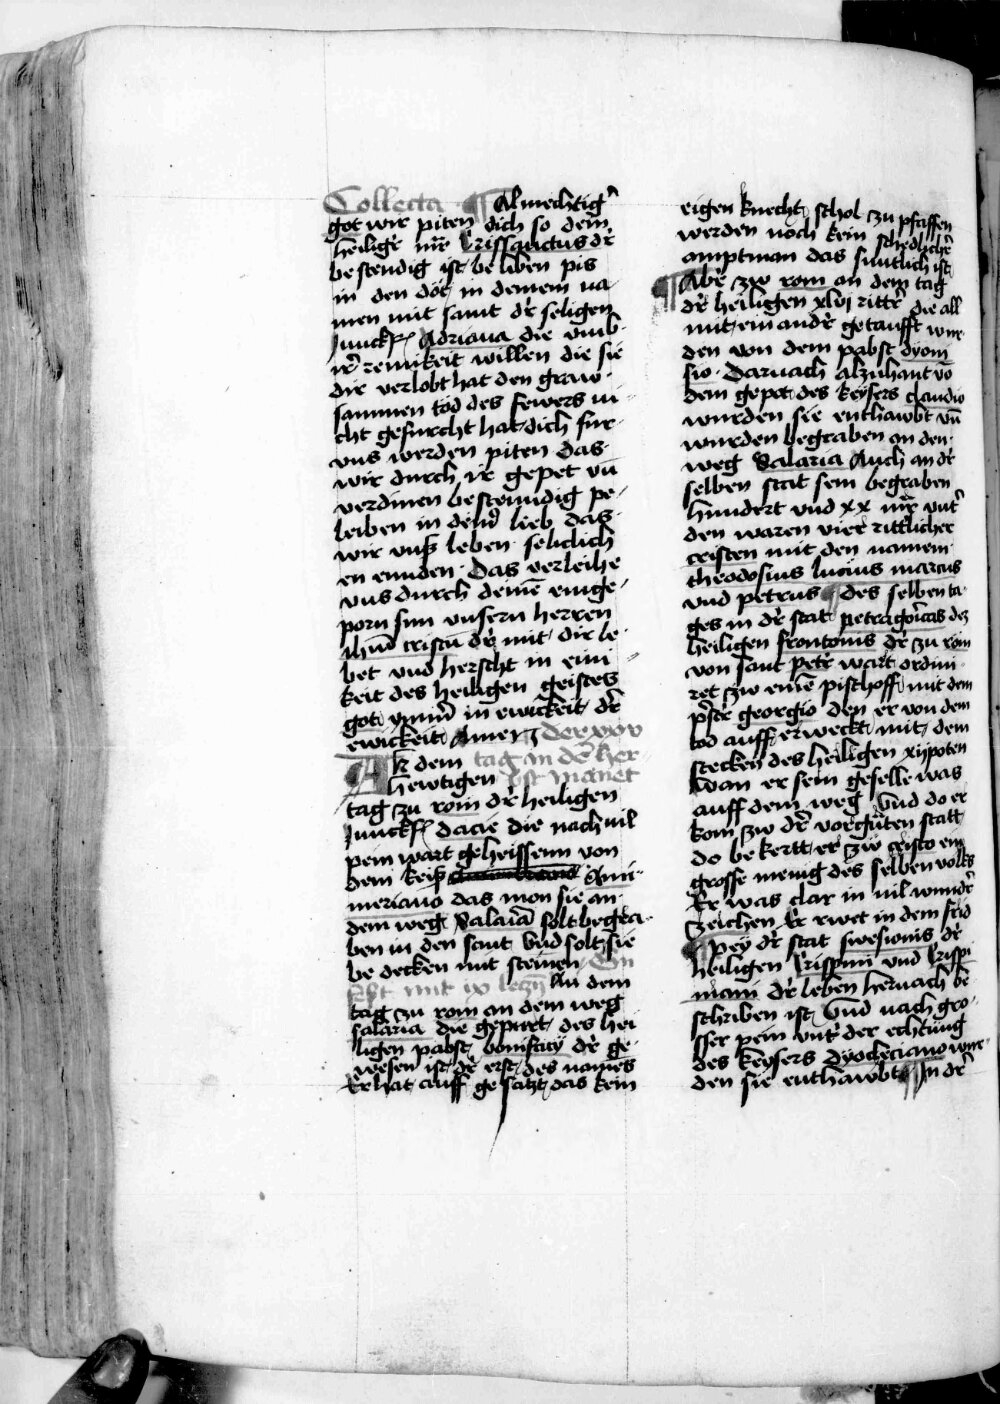 Collecta ¶ Almechtig̃
got wir piten dich so dein
heiliger mr̃ Crissanctus dr̃
bestendig ist beliben pis
in den dot in deinem na
men mit samt dr̃ seligen
junckf̃ Adriana die vmb
ir̃ reinikeit willen die sie
dir verlobt hat den graw
sammen tod des fewers ni
cht gefurcht hat dich fur
vns werden piten das
wir durch ir gepet vn̄
verdinen bestenndig pe
leiben in deinr̃ lieb das
wir vnß leben seliclich
en ennden Das verleihe
vns durch deinē einge
porn sun vnsern herren
ihm̄ cristū dr̃ mit dir le
bet vnd herscht in eini
keit des heiligen geistes
got ymmr̃ in ewickeit dr̃
ewickeit Amen der xxv
An dem tag in dē her
hewtigen bst manet
tag zu rom dr̃ heiligen
junckf̃ dacie die nach vil
pein wart geheissenn von
dem keiß Nu
meriano das mon sie an
dem weg Salaia solt begra
ben in den sant Vnd solt sie
bedecken mit steinen
mit ix leczn̄ An dem
tag zu rom an dem weg
salaria die gepurt des hei
ligen pabst bonifacij dr̃ ge
wesen ist dr̃ erst des names
Er hat auff gesatzt das kein
eigen knecht schol zu pfaffen
werden noch kein schedlicher̃
amptman das suntlich ist
¶ Abr̃ zw rom an dem tag
dr̃ heiligen xlvj rittr̃ die all
mit ein andr̃ getaufft wur
den von dem pabst dyoni
sio Darnach alzuhant vō
dem gepot des keysers claudio
wurden sie enthawbt vn̄
wurden begraben an den
weg Salaria Auch an dr̃
selben stat sein begraben
hundert vnd xx mr̃ vnt̃
den waren vier rittlicher
cristen mit den namen
theodosius lucius marcus
vnd petrus ¶ des selben ta
ges in dr̃ stat petragoricas dez
heiligen frontonis dr̃ zu rom
von sant petr̃ wart ordini
ret zw einē pischoff mit dem
pstr̃ georgio den er von dem
tod auff erweckt mit dem
stecken des heiligen xijpoten
Wan er sein geselle was
auff dem weg Vnd do er
kom zw dr̃ vorgñten statt
do bekertt er zw cristo ein
grosse menig des selben volks
Er was clar in vil wundr̃
zeichen Er rwet in dem frid
¶ pey dr̃ stat swesionis dr̃
heiligen Crispini vnd Crispi
niani dr̃ leben hernach be
schriben ist Vnd nach gro
sser pein vnt̃ der echtung
des keysers dyocleciano wur
den sie enthawbt ¶ In dr̃